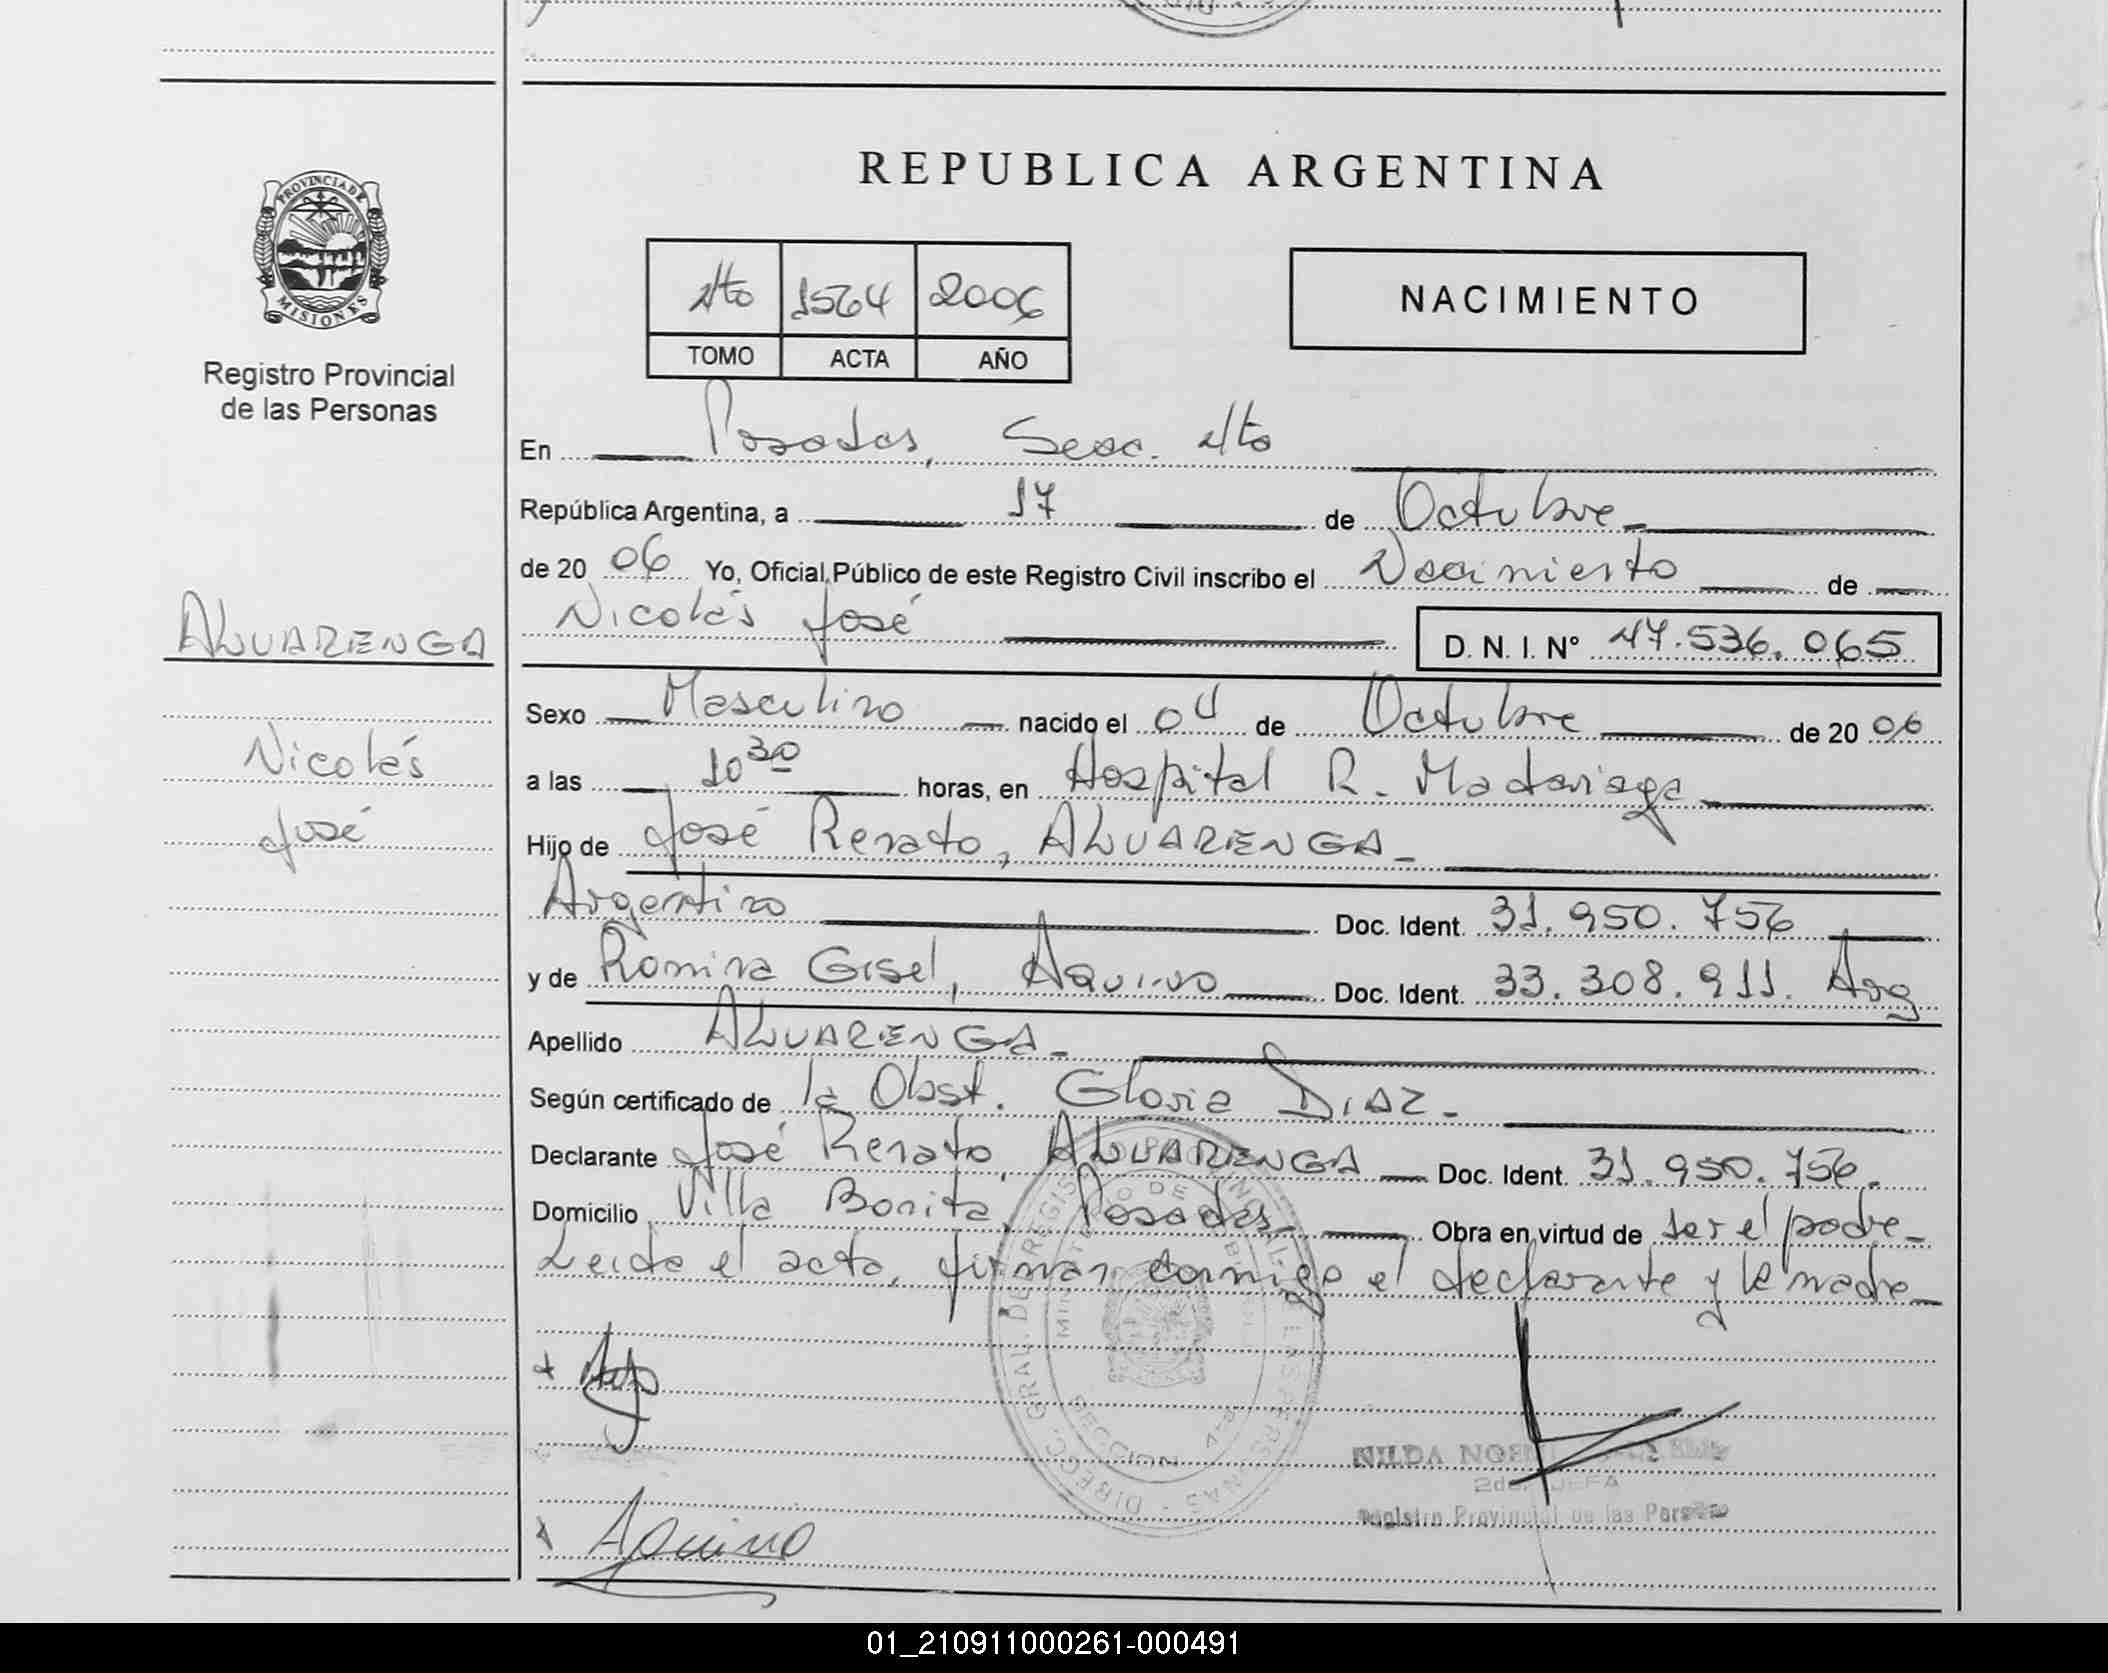 REPUBLICA ARGENTINA
PROVINCIA DE
MISIONES
Registro Provincial
de las Personas
4to 1564 2006
TOMO ACTA AÑO
NACIMIENTO
En Posadas, Secc. 4to
República Argentina, a 17 de Octubre
de 20 06 Yo, Oficial Público de este Registro Civil inscribo el Nacimiento de
Nicolás José D. N. I. Nº 47.536.065
ALVARENGA
Nicolás
José
Sexo Masculino nacido el 04 de Octubre de 20 06
a las 10 30 horas, en Hospital R. Madariaga
Hijo de José Renato, ALVARENGA
Argentino Doc. Ident. 31.950.756
y de Romina Gisel, Aquino Doc. Ident. 33.308.911. Arg
Apellido ALVARENGA
Según certificado de la Obst. Gloria DIAZ
Declarante José Renato, ALVARENGA Doc. Ident. 31.950.756.
Domicilio Villa Bonita, Posadas Obra en virtud de ser el padre
Leida el acta, firman conmigo el declarante y la madre
DIRECC. GRAL. DE REGIST PROVINCIAL DE LAS PERSONAS
SECCION 4ta
NILDA NOEMI
2da. JEFA
Registro Provincial de las Personas
Aquino
01_210911000261-000491